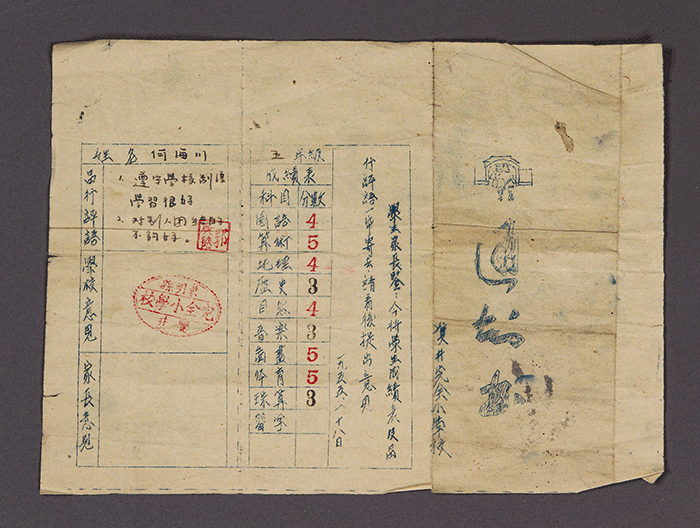 通知書
完全小學校
學生家長鑒：今將學生成績表及品
行評語一節寄去請看後提出意見
一九五五、八、十八日
五年級
成績表
科目 分數
國語 4
算術 5
地理 4
歷史 3
自然 4
音樂 3
圖畫 5
体育 5
珠算 3
習字
姓名 何海川
品行評語
1. 遵守學校制度
學習很好
2. 对别人团結的
不夠好。
學校意見
完全小學校
家長意見